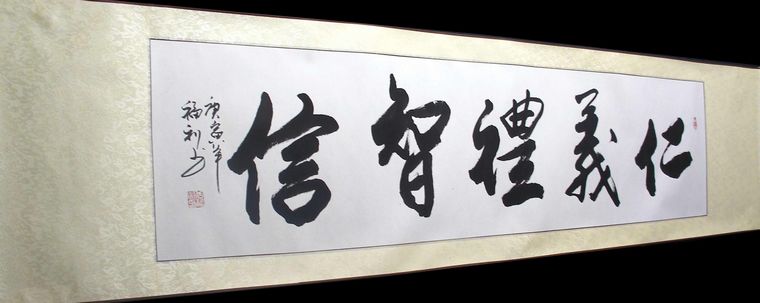 仁義禮智信
庚寅年
福利书